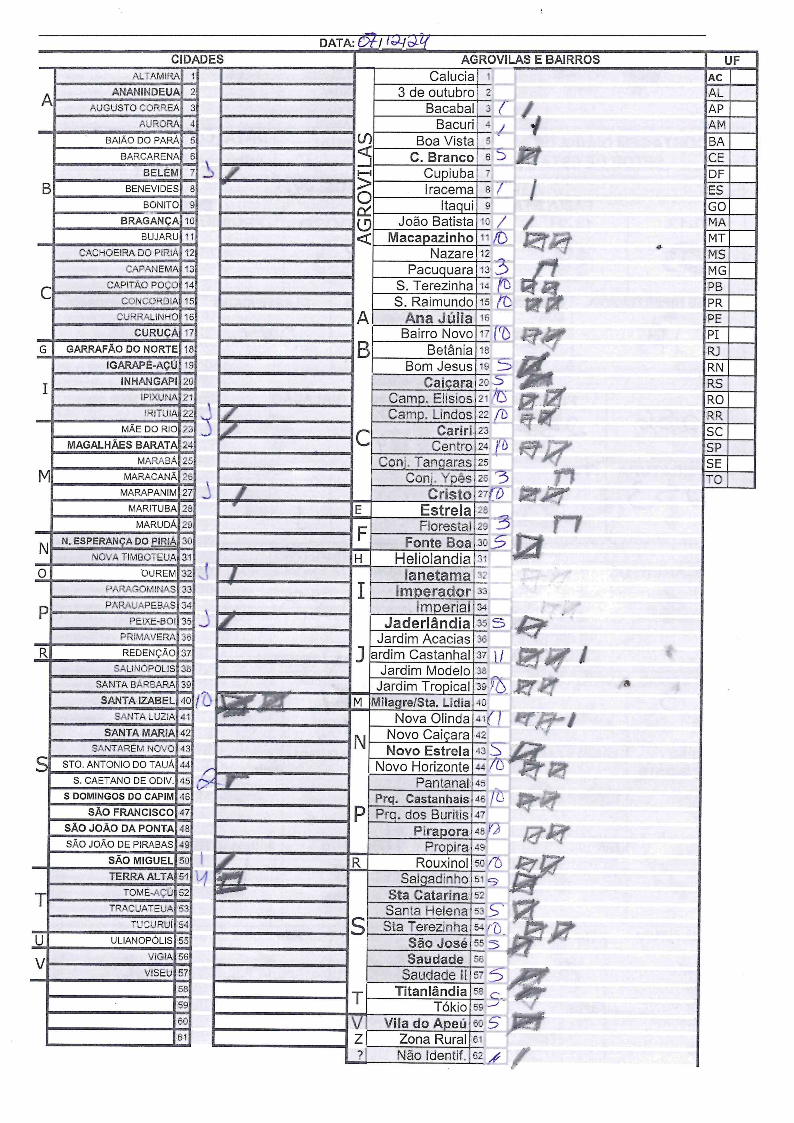 DATA: 07/12/24
CIDADES
A
ALTAMIRA 1
ANANINDEUA 2
AUGUSTO CORREA 3
AURORA 4
B
BAIÃO DO PARÁ 5
BARCARENA 6
BELÉM 7
BENEVIDES 8
BONITO 9
BRAGANÇA 10
BUJARU 11
C
CACHOEIRA DO PIRIÁ 12
CAPANEMA 13
CAPITÃO POÇO 14
CONCORDIA 15
CURRALINHO 16
CURUÇÁ 17
G GARRAFÃO DO NORTE 18
I
IGARAPÉ-AÇÚ 19
INHANGAPI 20
IPIXUNA 21
IRITUIA 22
M
MÃE DO RIO 23
MAGALHÃES BARATA 24
MARABÁ 25
MARACANÃ 26
MARAPANIM 27
MARITUBA 28
MARUDÁ 29
N
N. ESPERANÇA DO PIRIÁ 30
NOVA TIMBOTEUA 31
O OUREM 32
P
PARAGOMINAS 33
PARAUAPEBAS 34
PEIXE-BOI 35
PRIMAVERA 36
R REDENÇÃO 37
S
SALINÓPOLIS 38
SANTA BÁRBARA 39
SANTA IZABEL 40 10
SANTA LUZIA 41
SANTA MARIA 42
SANTARÉM NOVO 43
STO. ANTONIO DO TAUÁ 44
S. CAETANO DE ODIV. 45 2
S DOMINGOS DO CAPIM 46
SÃO FRANCISCO 47
SÃO JOÃO DA PONTA 48
SÃO JOÃO DE PIRABAS 49
SÃO MIGUEL 50 1
T
TERRA ALTA 51 4
TOMÉ-AÇÚ 52
TRACUATEUA 53
TUCURUÍ 54
U ULIANOPÓLIS 55
V
VIGIA 56
VISEU 57
58
59
60
61
AGROVILAS E BAIRROS
AGROVILAS
Calucia 1
3 de outubro 2
Bacabal 3 /
Bacuri 4 /
Boa Vista 5
C. Branco 6 5
Cupiuba 7
Iracema 8 /
Itaqui 9
João Batista 10 /
Macapazinho 11 10
Nazare 12
Pacuquara 13 3
S. Terezinha 14 10
S. Raimundo 15 10
A Ana Júlia 16
B
Bairro Novo 17 10
Betânia 18
Bom Jesus 19 5
C
Caiçara 20 5
Camp. Elisios 21 10
Camp. Lindos 22 10
Cariri 23
Centro 24 10
Conj. Tangaras 25
Conj. Ypês 26 3
Cristo 27 10
E Estrela 28
F
Florestal 29 3
Fonte Boa 30 5
H Heliolandia 31
I
Ianetama 32
Imperador 33
Imperial 34
J
Jaderlândia 35 5
Jardim Acacias 36
Jardim Castanhal 37 11
Jardim Modelo 38
Jardim Tropical 39 10
M Milagre/Sta. Lidia 40
N
Nova Olinda 41 11
Novo Caiçara 42
Novo Estrela 43 5
Novo Horizonte 44 10
P
Pantanal 45
Prq. Castanhais 46 10
Prq. dos Buritis 47
Pirapora 48 10
Propira 49
R Rouxinol 50 10
S
Salgadinho 51 5
Sta Catarina 52
Santa Helena 53 5
Sta Terezinha 54 10
São José 55 5
Saudade 56
Saudade II 57 5
T
Titanlândia 58 5
Tókio 59
V Vila do Apeú 60 5
Z Zona Rural 61
? Não Identif. 62
UF
AC
AL
AP
AM
BA
CE
DF
ES
GO
MA
MT
MS
MG
PB
PR
PE
PI
RJ
RN
RS
RO
RR
SC
SP
SE
TO